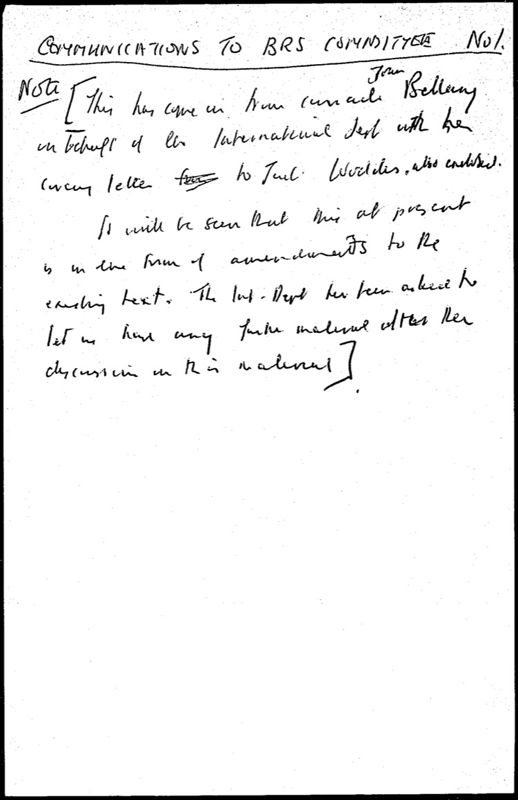 COMMUNICATIONS TO BRS COMMITTEE No 1.
Note [This has come in from comrade Joan Bellamy
on behalf of the International Dept with her
covering letter to Jack Woddis, also enclosed.
It will be seen that this at present
is in the form of amendments to the
existing text. The Int. Dept has been asked to
let us have any further material after their
discussion on this material].